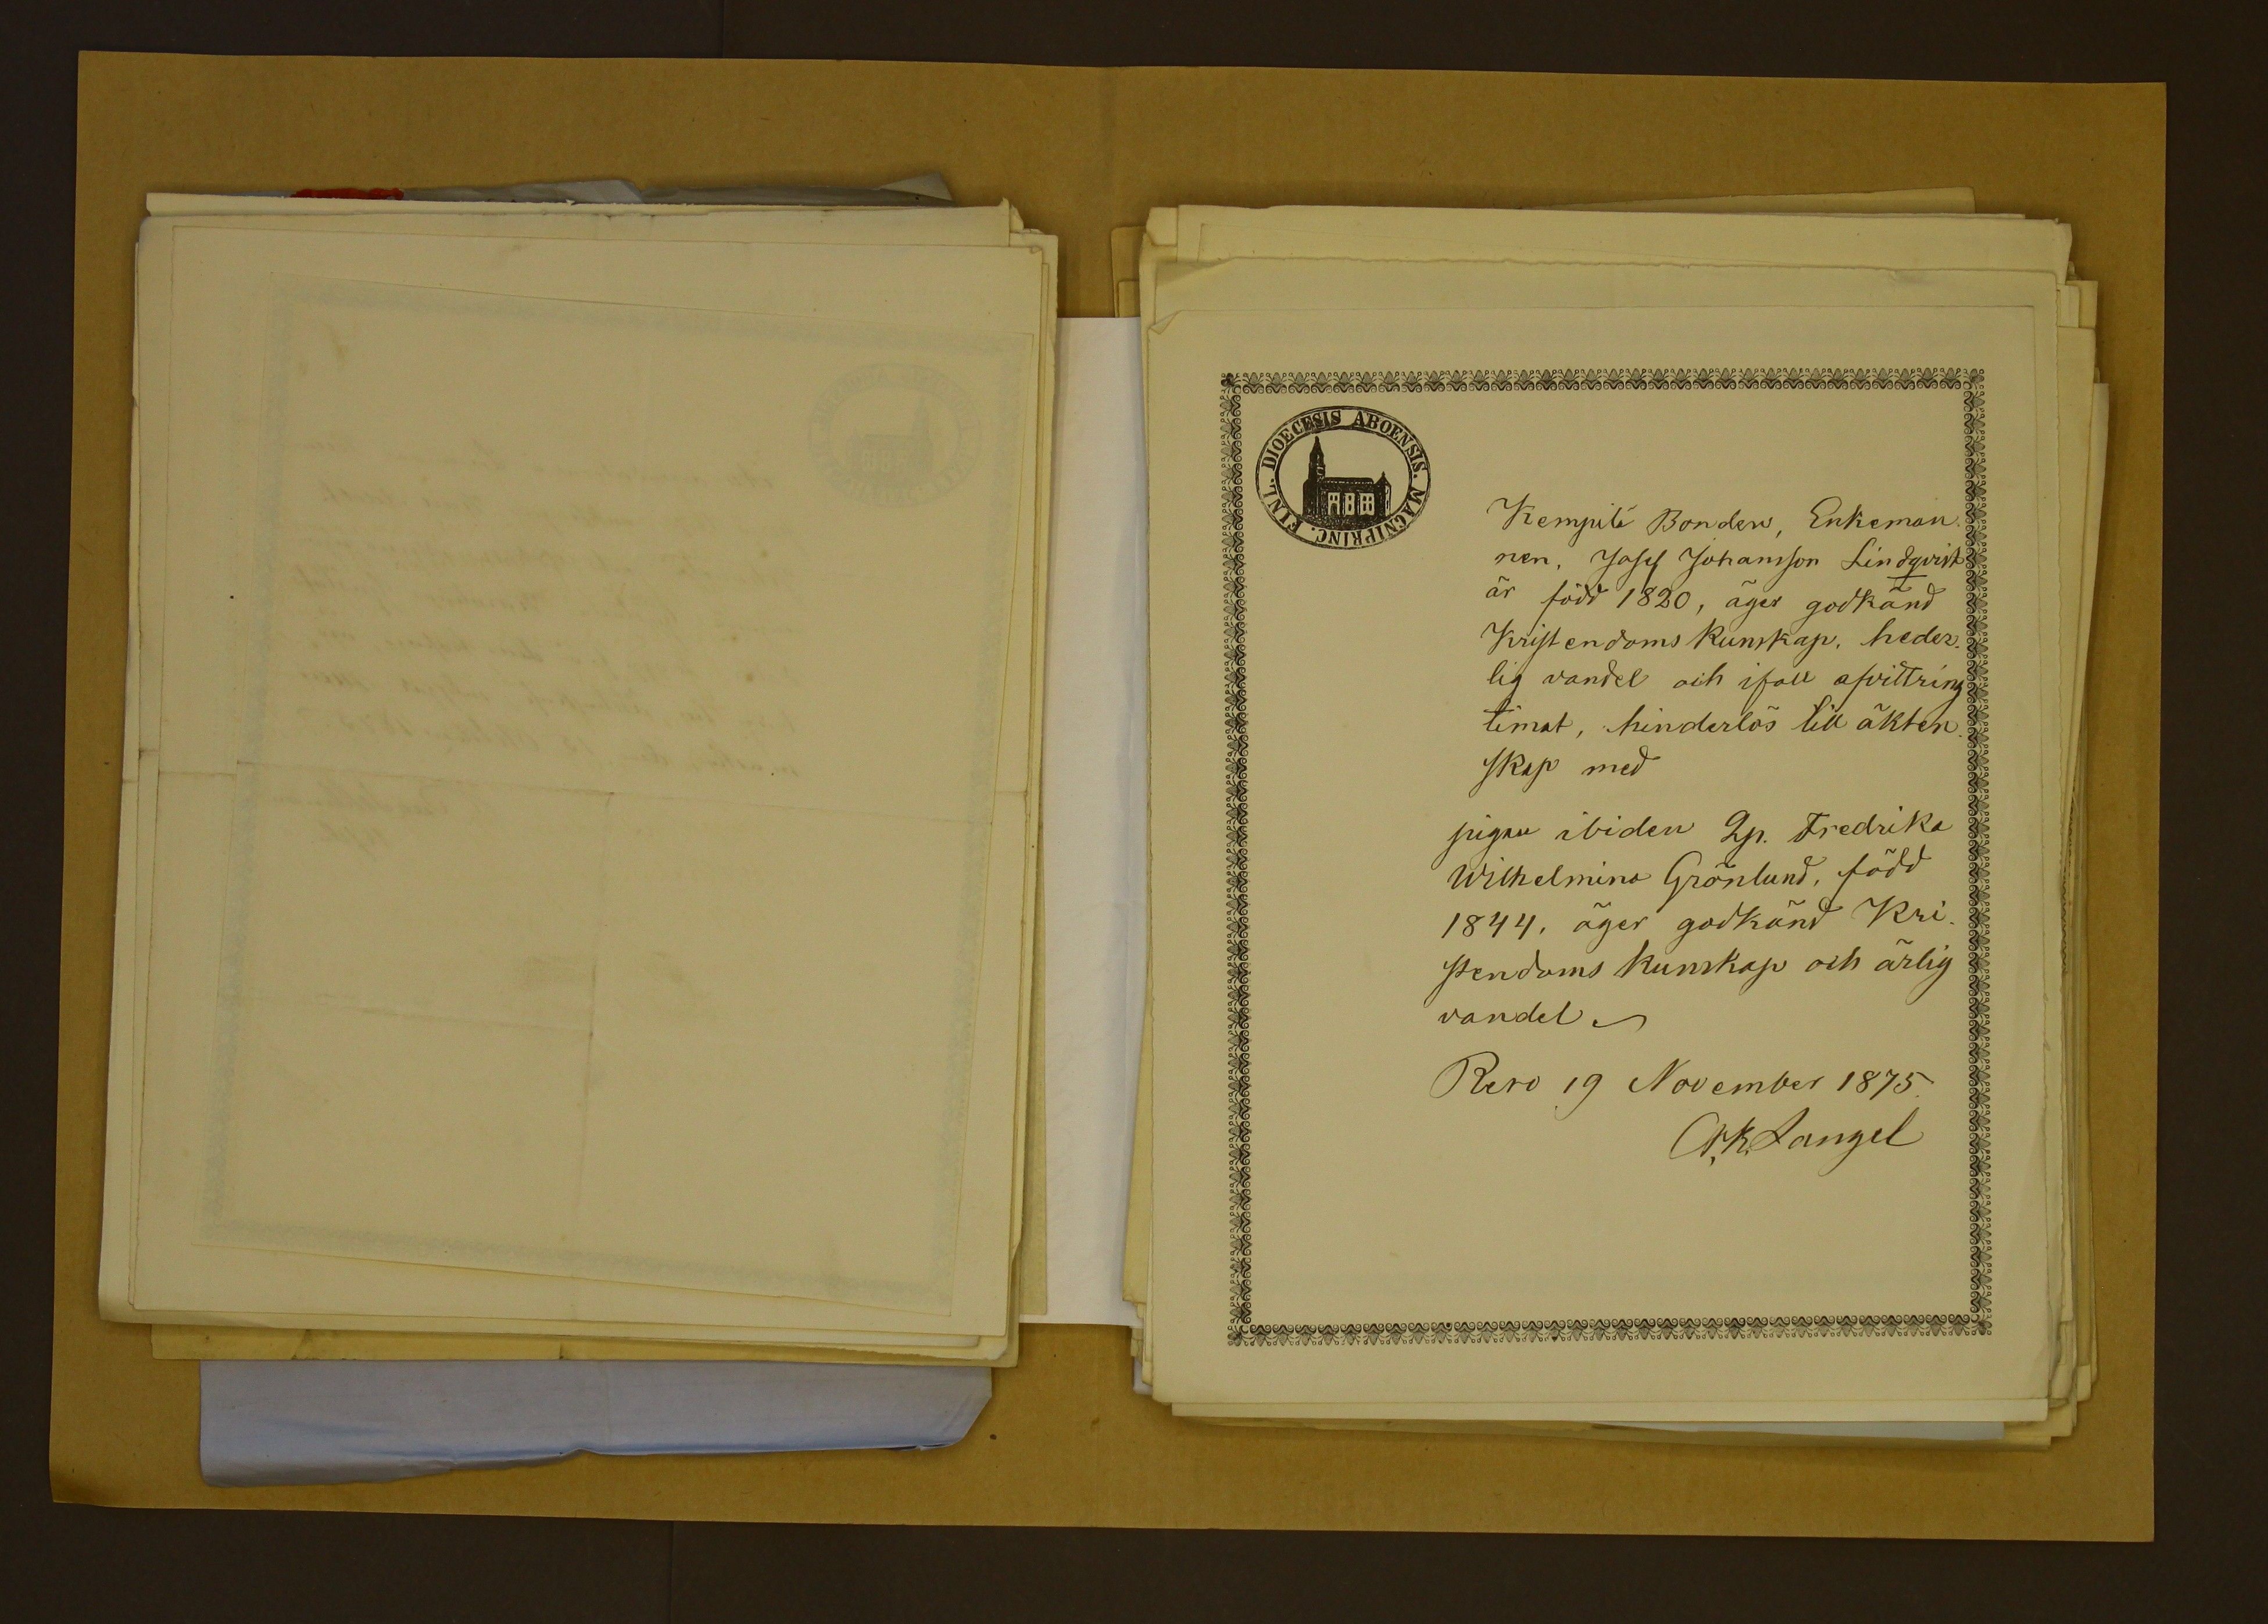 DIOECESIS ABOENSIS. MAGNIPRINC. FINL.
Kempilä Bonden, Enkeman.
nen, Josef Johansson Lindqvist
är född 1820, äger godkänd
Kristendoms kunskap, heder.
lig vandel och ifall afvittring
timat, hinderlös till äkten.
skap med
pigan ibiden Qp. Fredrika
Wilhelmina Grönlund, född
1844, äger godkänd Kri.
stendoms kunskap och ärlig
vandel
Reso 19 November 1875.
K. Langel